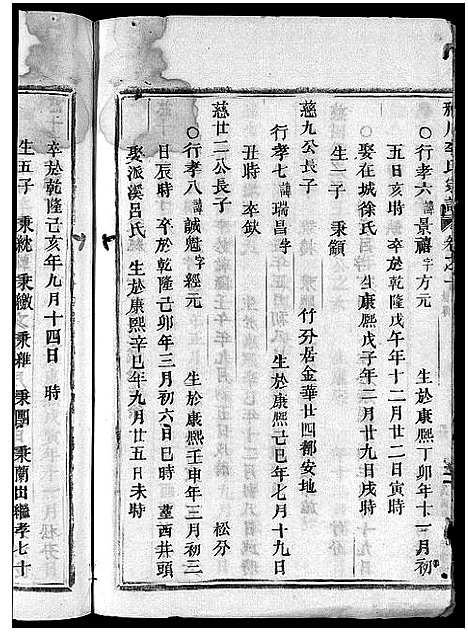 李氏宗譜 卷之十
○行孝六 諱 景禧 字 方元 生於康熙丁卯年十二月初
五日亥時 卒於乾隆戊午年十二月廿二日寅時
娶在城徐氏 生康熙戊子年二月廿九日戌時
生一子 秉顓
慈九公長子 竹分居金華廿四都安地
行孝七 諱 瑞昌 字 生於康熙己巳年七月十九日
丑時 卒缺
慈廿二公長子 松分
○行孝八 諱 誠魁 字 經元 生於康熙壬申年三月初三
日辰時 卒於乾隆己卯年三月初六日巳時 塟西井頭
娶派溪呂氏 生於康熙辛巳年九月廿五日未時
卒於乾隆己亥年九月十四日 時
生五子 秉統 秉繳 秉雜 秉團 秉蘭出繼孝七十